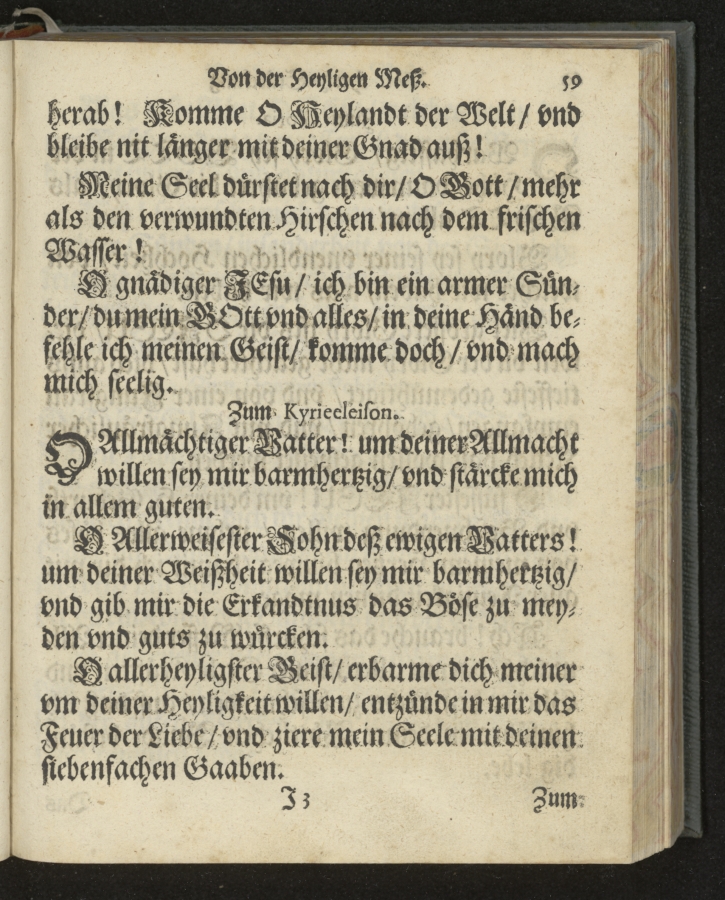 Von der Heyligen Meß. 59
herab! Komme O Heylandt der Welt / vnd
bleibe nit länger mit deiner Gnad auß!
Meine Seel dürstet nach dir / O Gott / mehr
als den verwundten Hirschen nach dem frischen
Wasser!
O gnädiger JEsu / ich bin ein armer Sün-
der / du mein GOtt vnd alles / in deine Händ be-
fehle ich meinen Geist / komme doch / vnd mach
mich seelig.
Zum Kyrieeleison.
O Allmächtiger Vatter! um deiner Allmacht
willen sey mir barmhertzig / vnd stärcke mich
in allem guten.
O Allerweisester Sohn deß ewigen Vatters!
um deiner Weißheit willen sey mir barmhertzig /
vnd gib mir die Erkandtnus das Böse zu mey-
den vnd guts zu würcken.
O allerheyligster Geist / erbarme dich meiner
vm deiner Heyligkeit willen / entzünde in mir das
Feuer der Liebe / vnd ziere mein Seele mit deinen
siebenfachen Gaaben.
J 3 Zum